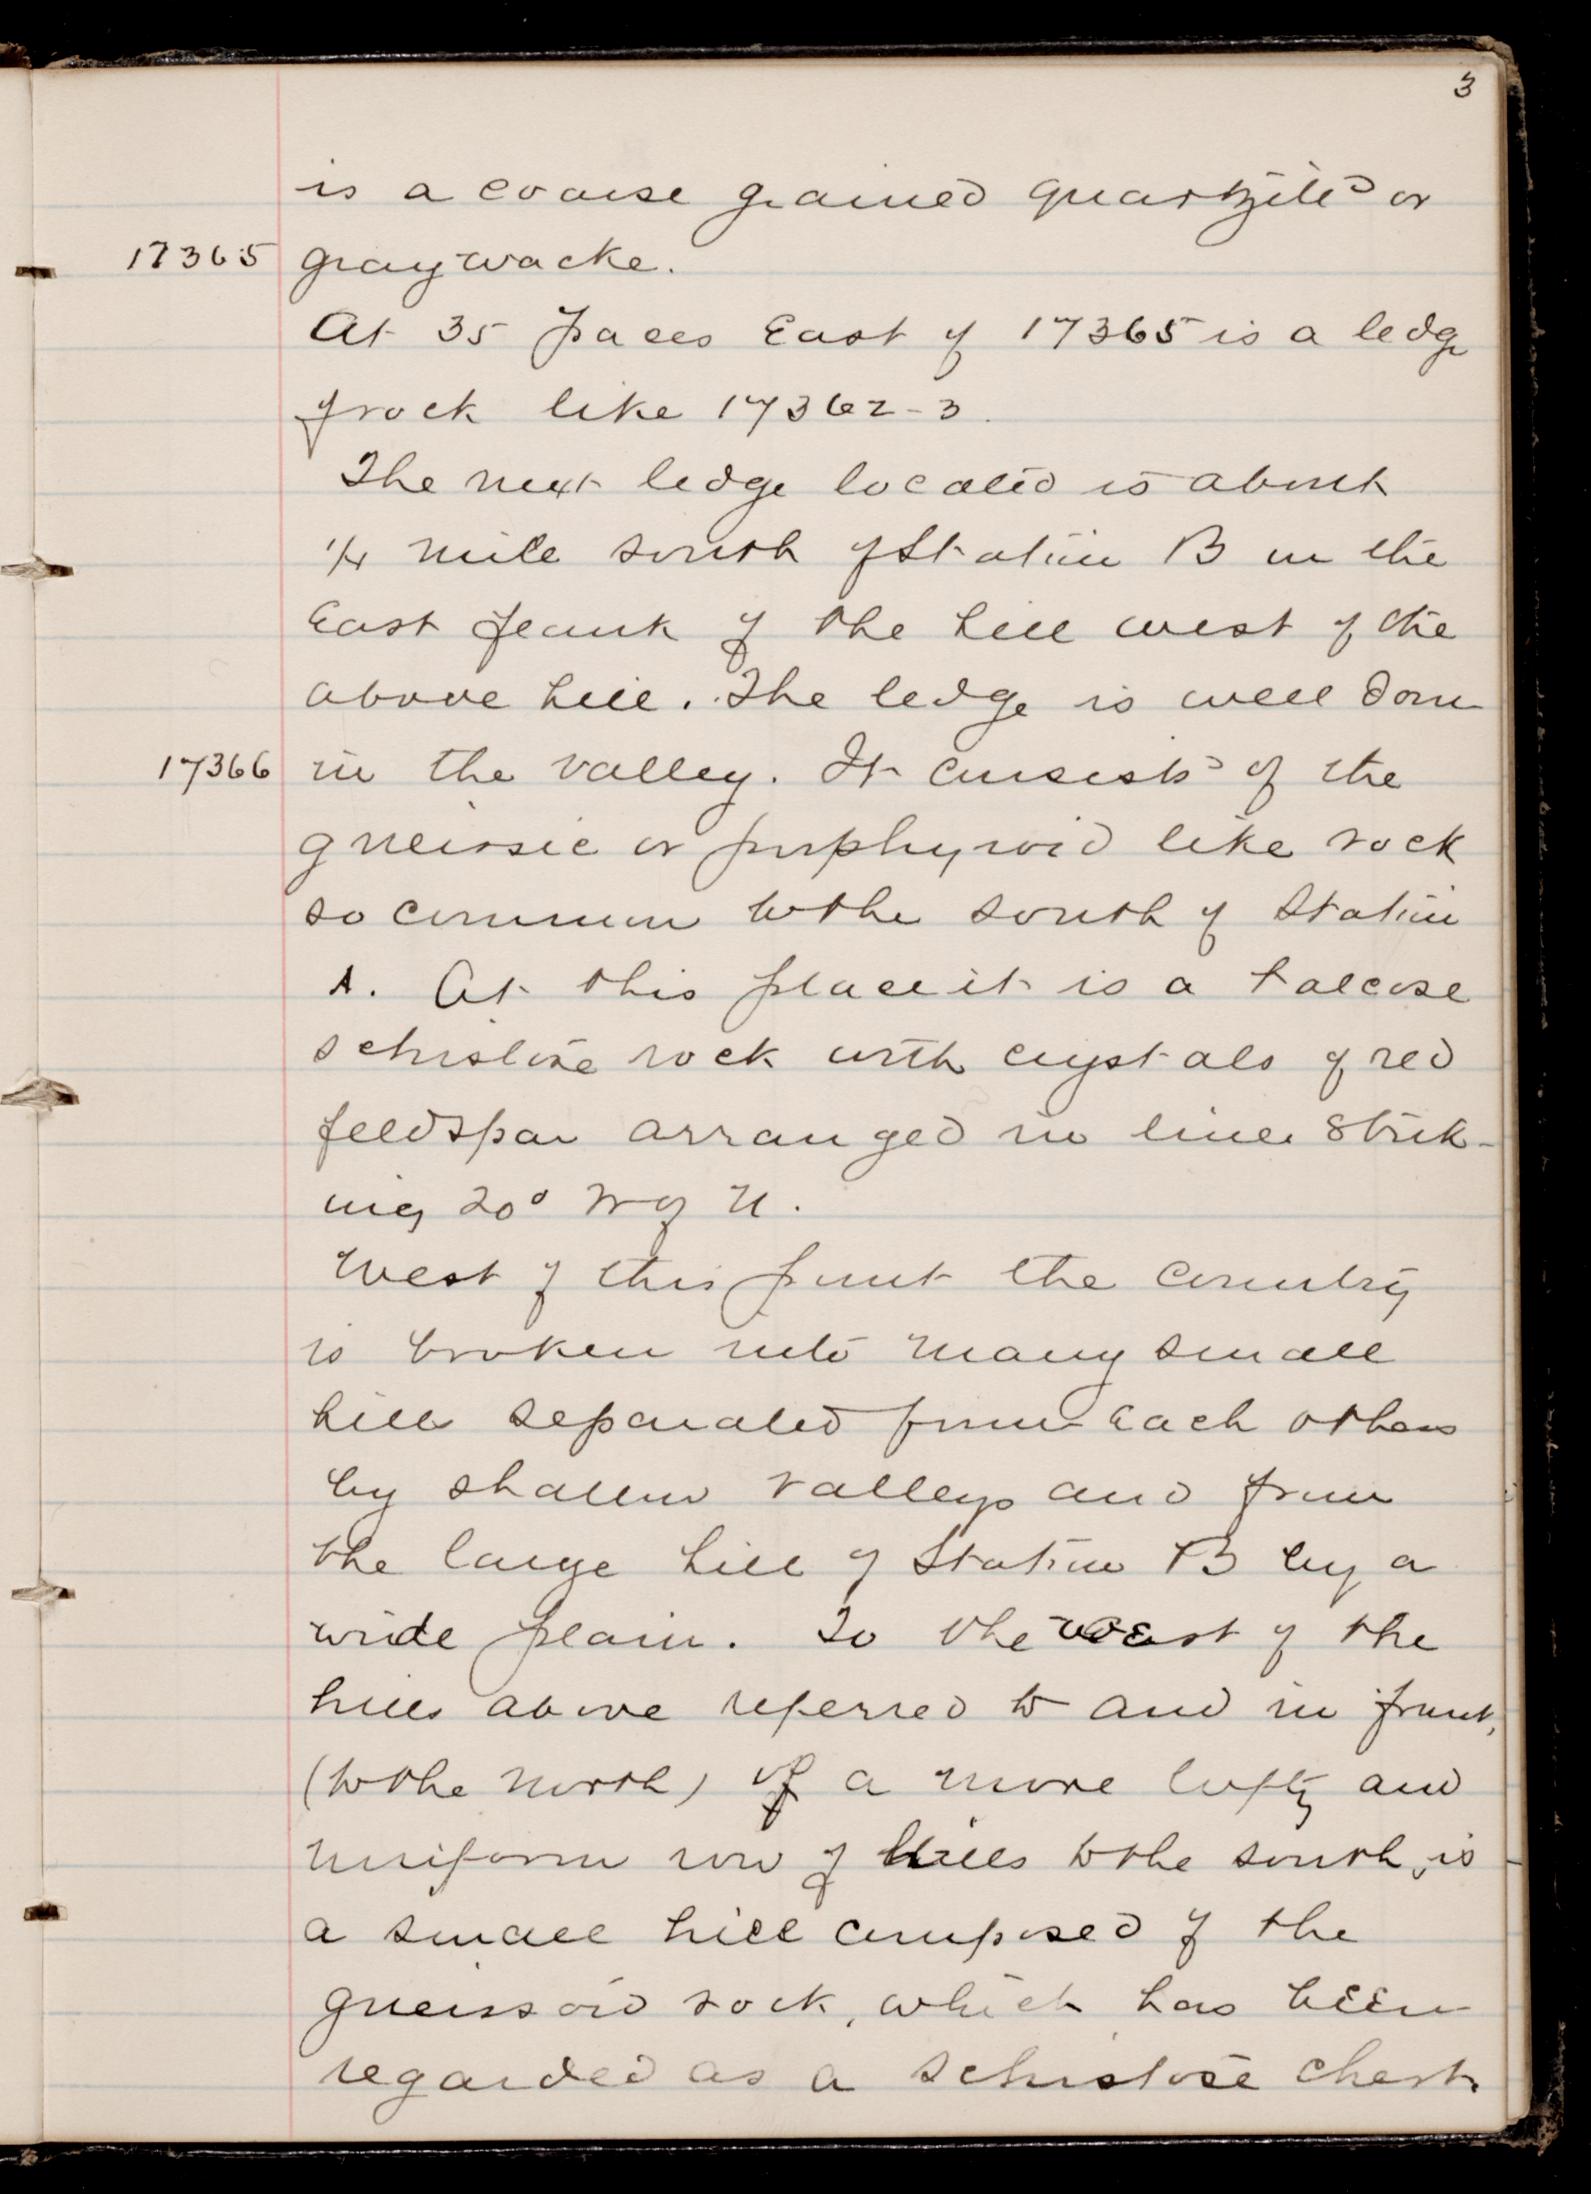 3
is a coarse grained quartzite or
17365 graywacke.
At 35 paces East of 17365 is a ledge
of rock like 17362-3.
The next ledge located is about
1/4 mile south of Station B on the
East flank of the hill west of the
above hill. The ledge is well down
17366 in the valley. It consists of the
gneissic or porphyroid like rock
so common to the south of Station
A. At this place it is a talcose
schistose rock with crystals of red
feldspar arranged in lines strik-
ing 20° W of N.
West of this point the country
is broken into many small
hills separated from each others
by shallow valleys and from
the large hill of Station B by a
wide plain. To the East of the
hills above referred to and in front,
(to the north) of a more lofty and
uniform row of hills to the south, is
a small hill composed of the
gneissoid rock, which has been
regarded as a schistose chert.